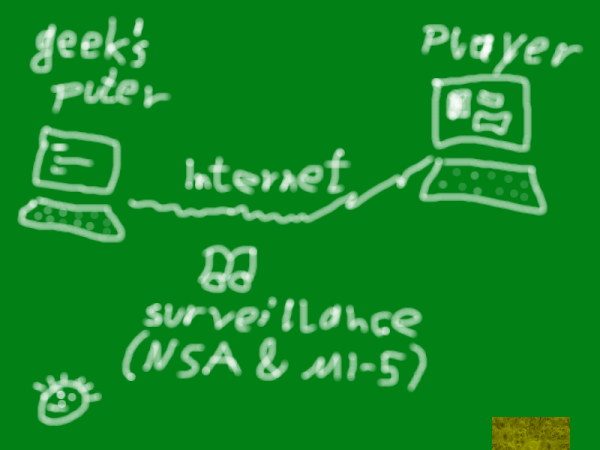 geek's
puter
Player
Internet
surveillance
(NSA & MI-5)